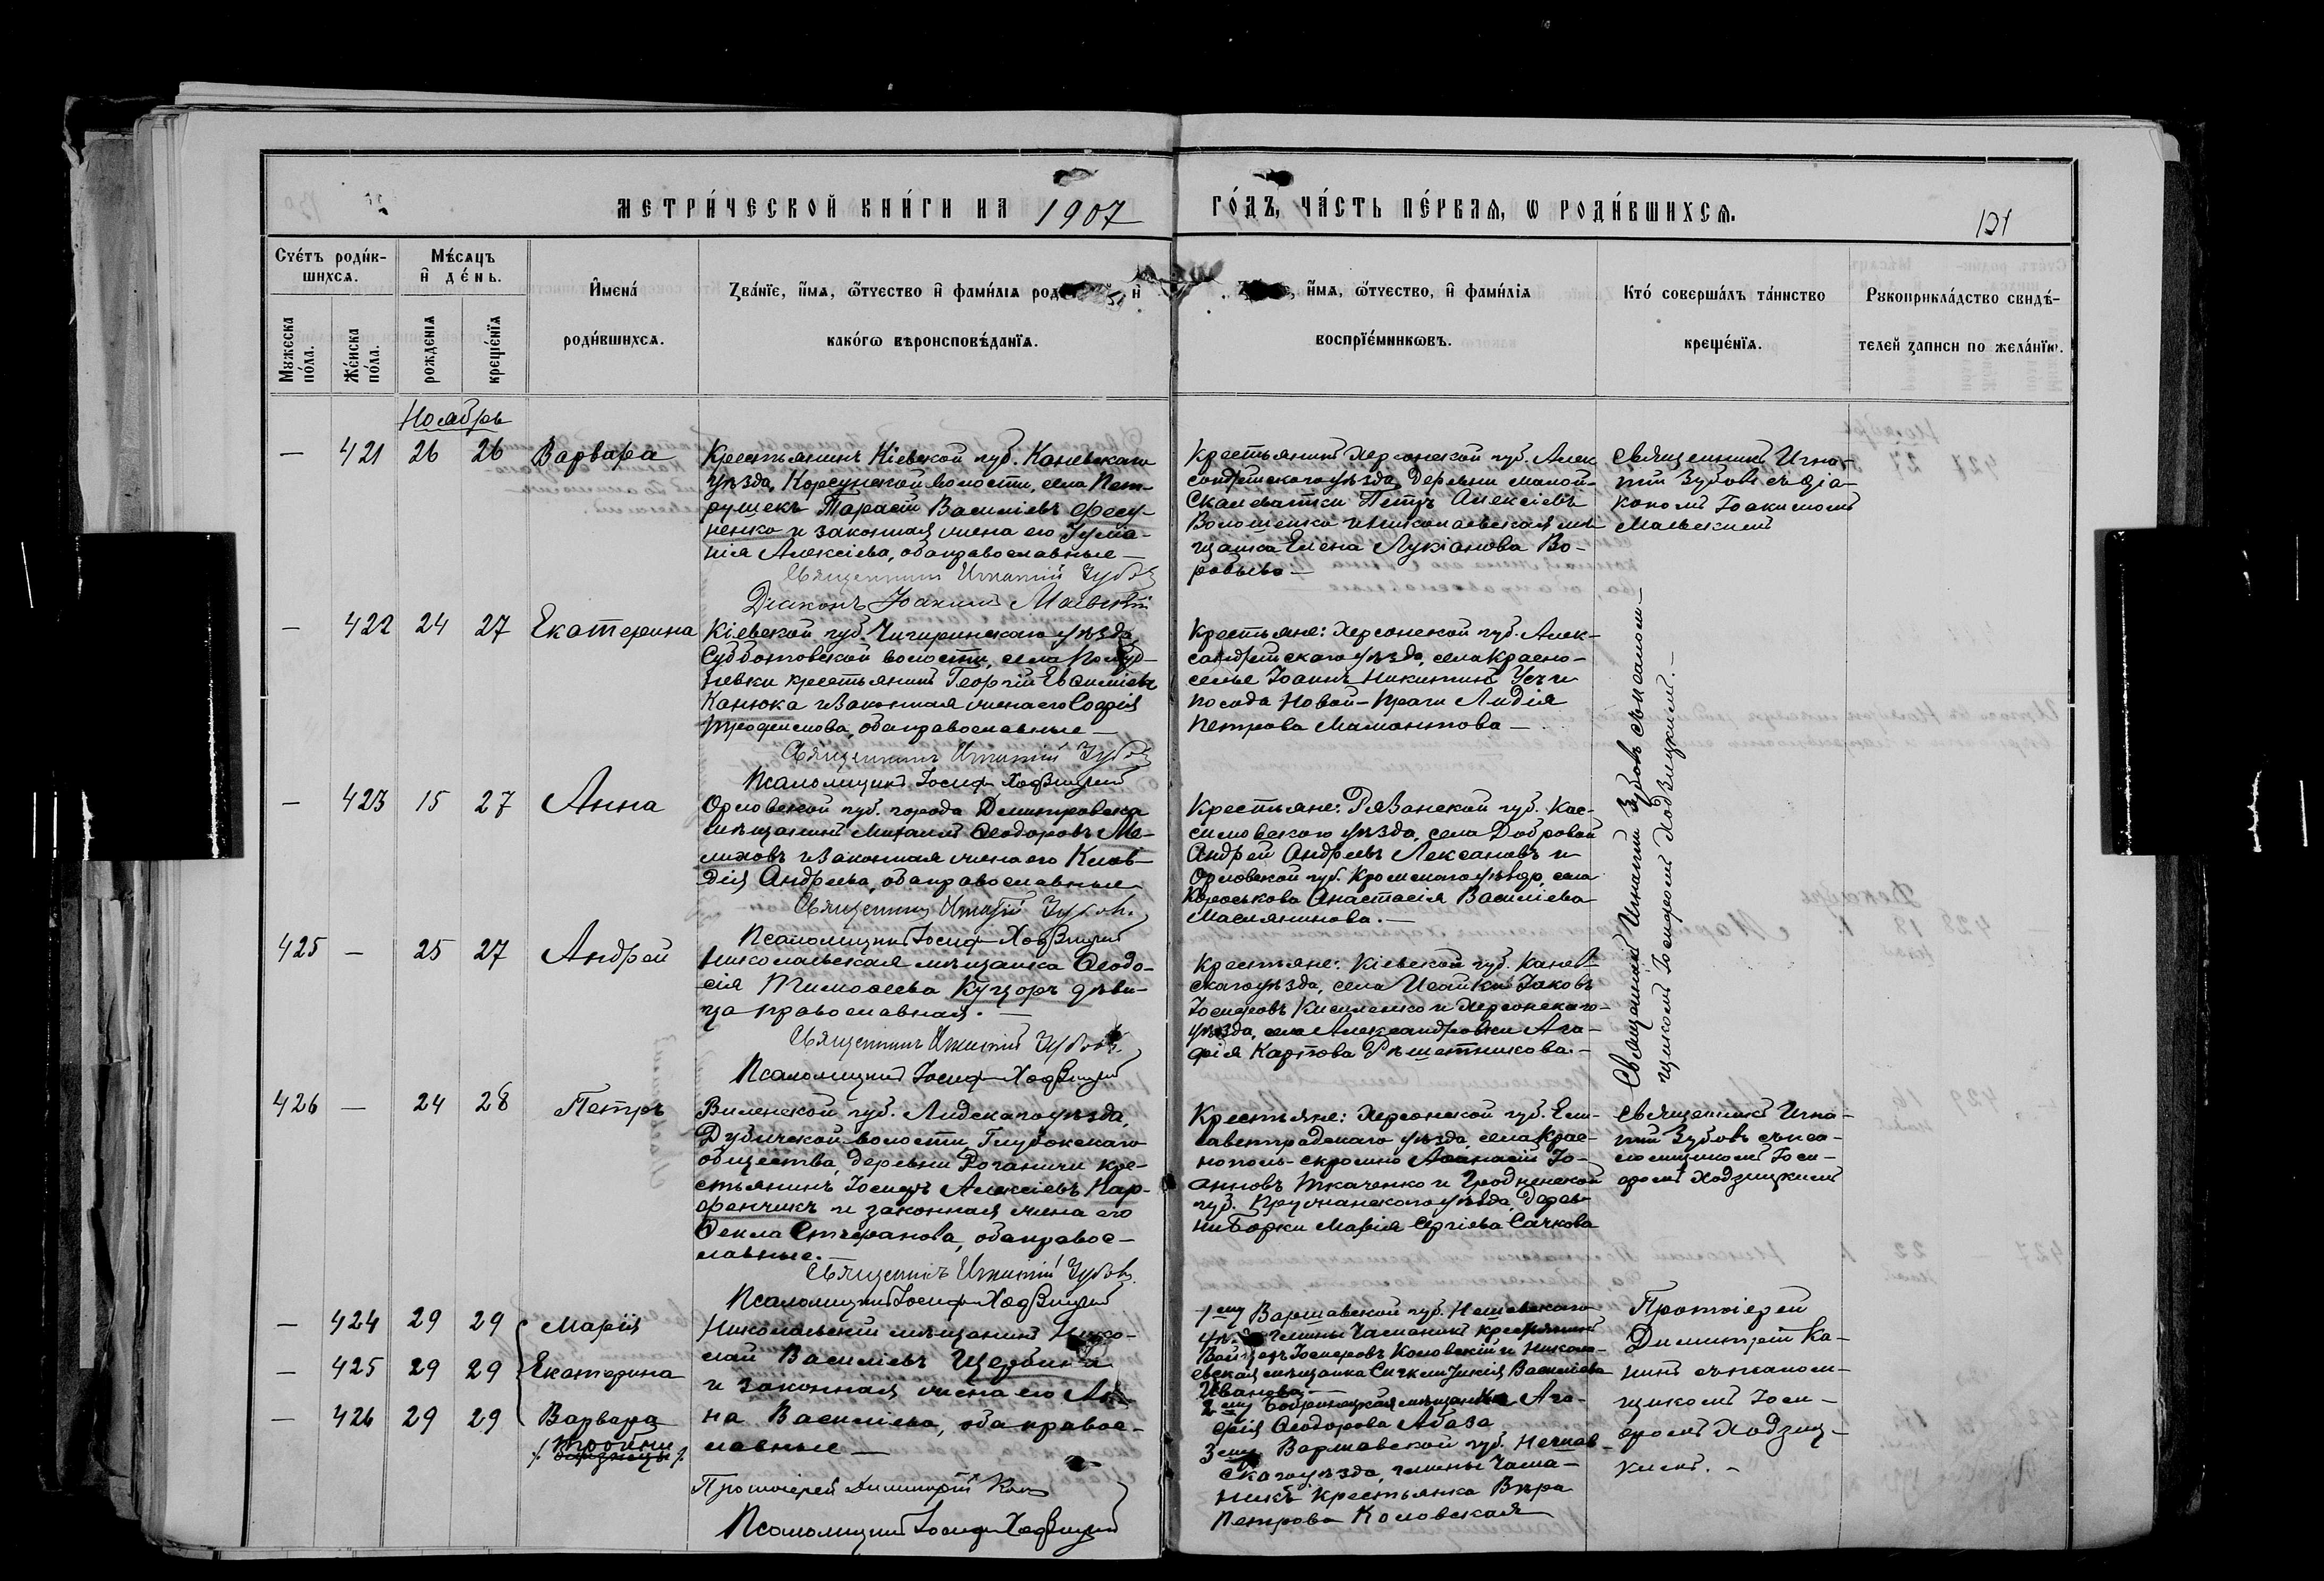 МЕТРИ́ЧЕСКОЙ КНИ́ГИ НА 1907 ГО́ДЪ, ЧА́СТЬ ПЕ́РВАЯ, Ѡ РОДИ́ВШИХСЯ.
121
Счетъ роди́в-
шихся.
Мѣ́сяцъ
и҆ де́нь.
Мужеска по́ла.
Же́нска по́ла.
рожденія
креще́нїя
И҆мена́
роди́вшихся.
Зва́нїе, и҆́мя, ѻ҆́тчество и҆ фами́лїя и҆
како́гѡ вѣроисповѣ́данїя.
и҆́мя, ѻ҆́тчество, и҆ фами́лїя
воспрїе́мникѡвъ.
Кто́ соверша́лъ та́инство
креще́нїя.
Рукоприкла́дство свидѣ́-
телей записи по жела́нїю.
Ноябрь
— 421 26 26 Варвара
Крестьянинъ Кіевской губ. Каневскаго
уѣзда, Корсунской волости, села Пет-
рушекъ Тарасій Василіевъ Фесу-
ненко и законная жена его Гума-
нія Алексіева, оба православные —
Священникъ Игнатій Зубовъ
Діаконъ Іоакимъ Маевскій
Крестьянинъ Херсонской губ. Алек
сандрійскаго уѣзда, Деревни Малой-
Скалеватки Петръ Алексіевъ
Волошенко и Николаевская мѣ-
щанка Елена Лукіанова Во-
робьева —
Священникъ Игна-
тій Зубовъ съ діа-
кономъ Іоакимомъ
Маевскимъ
— 422 24 27 Екатерина
Кіевской губ. Чигиринскаго уѣзда,
Субботовской волости, села
крестьянинъ Георгій Евѳиміевъ
Канюка и законная жена его Софія
Трофимова, оба православные —
Священникъ Игнатій Зубовъ
Псаломщикъ Іосифъ Ходзицкій
Крестьяне: Херсонской губ. Алек-
сандрійскаго уѣзда, села Красно-
селье Іоаннъ Никитинъ Усъ и
посада Новой-Праги Лидія
Петрова Мамонтова —
Священникъ Игнатій Зубовъ съ псалом-
щикомъ Іосифомъ Ходзицкимъ. —
— 423 15 27 Анна
Орловской губ. города Дмитровска
мѣщанинъ Михаилъ Ѳеодоровъ Ме-
лиховъ и законная жена его Клав-
дія Андреева, оба православные
Священникъ Игнатій Зубовъ.
Псаломщикъ Іосифъ Ходзицкій
Крестьяне: Рязанской губ. Кас-
симовскаго уѣзда, села Добровой
Андрей Андреевъ Лексановъ и
Орловской губ. Кромскаго уѣзда, села
Короськова Анастасія Василіева
Маслянинова. —
425 — 25 27 Андрей
Николаевская мѣщанка Ѳеодо-
сія Тимоѳеева Куцоръ дѣви-
ца православная. —
Священникъ Игнатій Зубовъ.
Псаломщикъ Іосифъ Ходзицкій
Крестьяне: Кіевской губ. Канев-
скаго уѣзда, села Исайки Іаковъ
Іосифовъ Кисиленко и Херсонскаго-
уѣзда, села Александровки Ага-
фія Карпова Рѣшетникова. —
426 — 24 28 Петръ
Виленской губ. Лидскаго уѣзда,
Дубичской волости, Глубокскаго
общества, деревни Роганичи кре-
стьянинъ Іосифъ Алексіевъ Пар-
фенчикъ и законная жена его
Ѳекла Стефанова, оба правос-
лавные. —
Священникъ Игнатій Зубовъ.
Псаломщикъ Іосифъ Ходзицкій
Крестьяне: Херсонской губ. Ели-
саветградскаго уѣзда, села Крас-
нополь-скромно Аѳанасій Іо-
анновъ Ткаченко и Гродненской
губ. Пружанскаго уѣзда, дерев-
ни Борки Марія Сергіева Сачкова
Священникъ Игна-
тій Зубовъ съ пса-
ломщикомъ Іоси-
фомъ Ходзицкимъ
— 424 29 29 Марія
— 425 29 29 Екатерина
— 426 29 29 Варвара
/ тройни /
Николаевскій мѣщанинъ Нико-
лай Василіевъ Щербина
и законная жена его Ан-
на Василіева, оба правос-
лавные —
Протоіерей Димитрій
Псаломщикъ Іосифъ Ходзицкій
1 ему Варшавской губ. Нешавскаго
гмины Чаманинъ крестьянинъ
Іосифовъ Коловскій и Никола-
евская мѣщанка Василіева
Иванова —
2 ему Бобринецкая мѣщанка Ага-
фія Ѳеодорова Абаза
3 ему Варшавской губ. Нешав-
скаго уѣзда, гмины Чама-
нинъ крестьянка Вѣра
Петрова Коловская
Протоіерей
Димитрій Ка-
нинъ съ псалом-
щикомъ Іоси-
фомъ Ходзиц-
кимъ. —